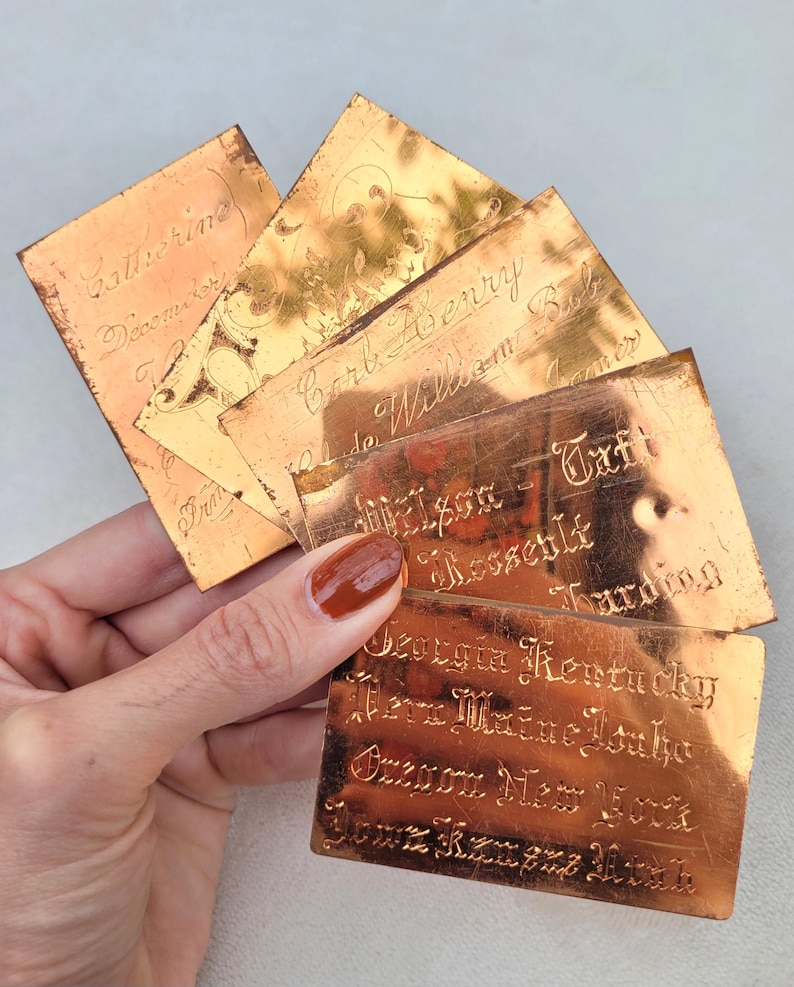 Catherine
December
Carl Henry
William Bob
James
Wilson - Taft
Roosevlt
Harding
Georgia Kentucky
Peru Maine Idaho
Oregon New York
Iowa Kansas Utah